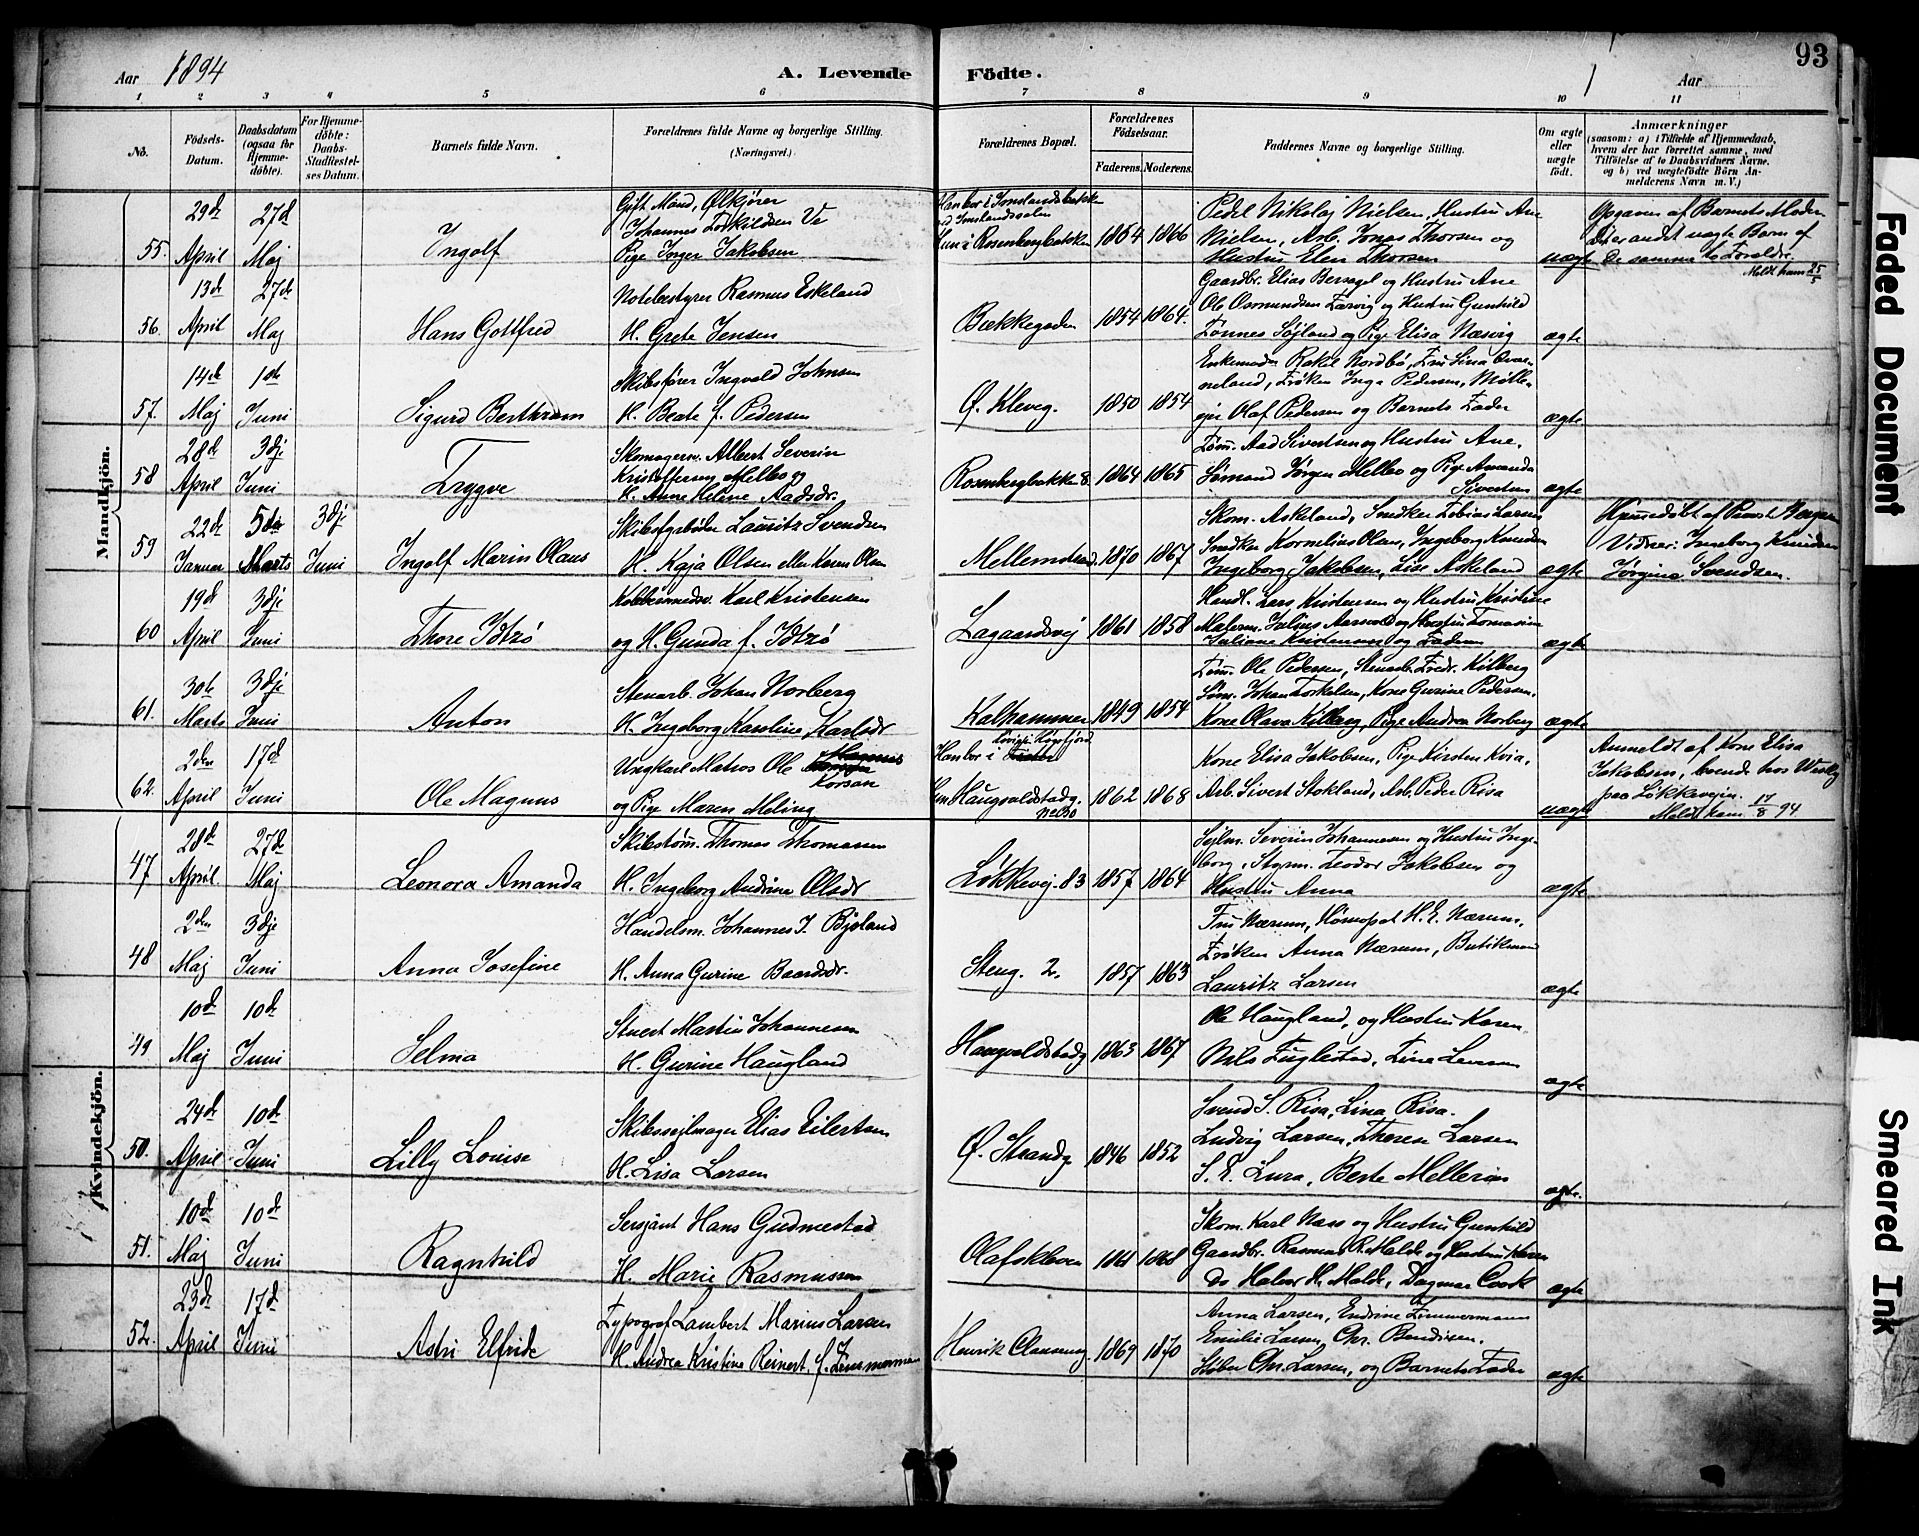 Aar 1894
A. Levende
Födte.
Aar
93
1 2 3 4 5 6 7 8 9 10 11
No.
Födsels-Datum.
Daabsdatum (ogsaa for Hjemme-döbte).
For Hjemme-döbte: Daabs-Stadfæstel-ses Datum.
Barnets fulde Navn.
Forældrenes fulde Navne og borgerlige Stilling.
(Næringsvei.)
Forældrenes Bopæl.
Forældrenes Födselsaar.
Faderens. Moderens.
Faddernes Navne og borgerlige Stilling.
Om ægte eller uægte födt.
Anmærkninger
(saasom: a) i Tilfælde af Hjemmedaab, hvem der har forrettet samme, med Tilföielse af to Daabsvidners Navne, og b) ved uægtefödte Börn An-melderens Navn m. V.)
Mandkjön.
55. 29de April 27de Maj Ingolf
Gift Mand, Ølkjører
Johannes Torkildsen
Pige Inger Jakobsen
Rosenbergbakken 1854 1866
Pedel Nikolaj Nielsen, Hustru Ane
Nielsen, Arb. Jonas Thorsen og
Hustru Elen Thorsen
uægte
Opgaven af Barnets Moder
de samme to Forældre.
Meldt ham 25/5
56. 13de April 27de Maj Hans Gottfred
Notebestyrer Rasmus Eskeland
H. Grete Jensen
Bækkegaden 1854 1864.
Gaardbr. Elias Bersagel og Hustru Ane
Ole Osmundsen Tarvig og Hustru Gunhild
Tønnes Søjland og Pige Elisa Næsvig
ægte
57. 14de Maj 1ste Juni Sigurd Berthram
Skibsfører Ingvald Johnsen
H. Beate f. Pedersen
Ø. Kleveg. 1850 1854
Enkemadm Rakel Nordbø, Fru Lina
Frøken Inga Pedersen, Mølle-
ejer Olaf Pedersen og Barnets Fader
ægte
58 28de April 3dje Juni Trygve
Skomagersv. Albert Severin
Kristoffersen Mellbo og
H. Anne Helene Aadsdr.
Rosenbergbakken 8 1864 1865
Tøm. Aad Sivertsen og Hustru Ane.
Sømand Jørgen Mellbo og Pige Amanda
Sivertsen
ægte
59 22de Januar 5te Marts 3dje Juni Ingolf Marin Olaus
Lauritz Svendsen
H. Kaja Olsen eller Karen Olsen
Mellemstrand. 1870 1867
Skom. Askeland, Snedker Tobias Larsen
Snedker Kornelius Olsen, Ingeborg Knudsen
Ingeborg Jakobsen, Lise Askeland
ægte
Hjemmedøbt af
Vidner: Ingeborg Knudsen
Jørgine Svendsen.
60 19de April 3dje Juni Thore Idtsø
Kobbersmedsv. Karl Kristensen
og H. Gunda f. Idtsø
Lagaardsvej 1861 1858
Handl. Lars Kristensen og Hustru Kristine
Malerm. Julius Aarvold og Hustru Tomasine
Juliane Kristensen og Faderen
ægte
61. 30te Marts 3dje Juni Anton
Stenarb. Johan Norberg
H. Ingeborg Karoline Karlsdr
Kalhammer 1849 1854
Tøm. Ole Pedersen, Stenarb. Fredr. Kilberg
Søm. Johan Torkelsen, Kone Gurine Pedersen.
Kone Olava Kilberg, Pige Andrea Norberg
ægte
62. 2den April 17de Juni Ole Magnus
Ungkarl Matros Ole
Korsan
og Pige Maren Meling
Han bor i
Hun Haugvaldstadg. 1862 1868
Kone Elisa Jakobsen, Pige Kirsten Kvia,
Arb. Sivert Stokland, Arb. Peder Risa
uægte
Anmeldt af Kone Elisa
Jakobsen, boende hos
paa Løkkevejen.
Meldt ham 17/8 94
Kvindekjön.
47 28de April 27de Maj Leonora Amanda
Skibstøm. Thomas Thomassen
H. Ingeborg Andrine Olsdr
Løkkevej 83 1857 1864
Sejlm. Severin Johannesen og Hustru Inge-
borg, Styrm. Teodor Jakobsen og
Hustru Anna
ægte
48 2den Maj 3dje Juni Anna Josefine
Handelsm. Johannes J. Byland
H. Anna Gurine Baardsdr.
Steng. 2. 1857 1863
Fru Nærum, Homøopat H. E. Nærum,
Frøken Anna Nærum, Butikmand
Lauritz Larsen
ægte
49 10de Maj 10de Juni Selma
Stuert Martin Johannesen
H. Gurine Haugland
Haugvaldstadg 1863 1867
Ole Haugland, og Hustru Karen
Nils Fuglestad, Tine Larsen
ægte
50. 24de April 10de Juni Lilly Louise
Skibssejlmager Elias Eilertsen
H. Lisa Larsen
Ø. Strandg 1846 1852
Svend S. Risa, Lina Risa.
Ludvig Larsen, Therese Larsen
S. E. Lura, Berte
ægte.
51. 10de Maj 10de Juni Ragnhild
Sersjant Hans Gudmestad
H. Marie Rasmussen
Olafskleven 1868
Skom. Karl Næss og Hustru Gunhild
Gaardbr. Rasmus R. Malde og Hustru Karen
do Halvor H. Malde, Dagmar Cook
ægte
52. 23de April 17de Juni Astri Elfride
Typograf Lambert Marius Larsen
H. Andrea Kristine Reinert, f. Zimmermann
Henrik 1869 1870
Anna Larsen, Endrine Zimmermann
Emilie Larsen, Chr. Bendixsen.
Støber Chr. Larsen, og Barnets Fader
ægte
Faded Document
Smeared Ink